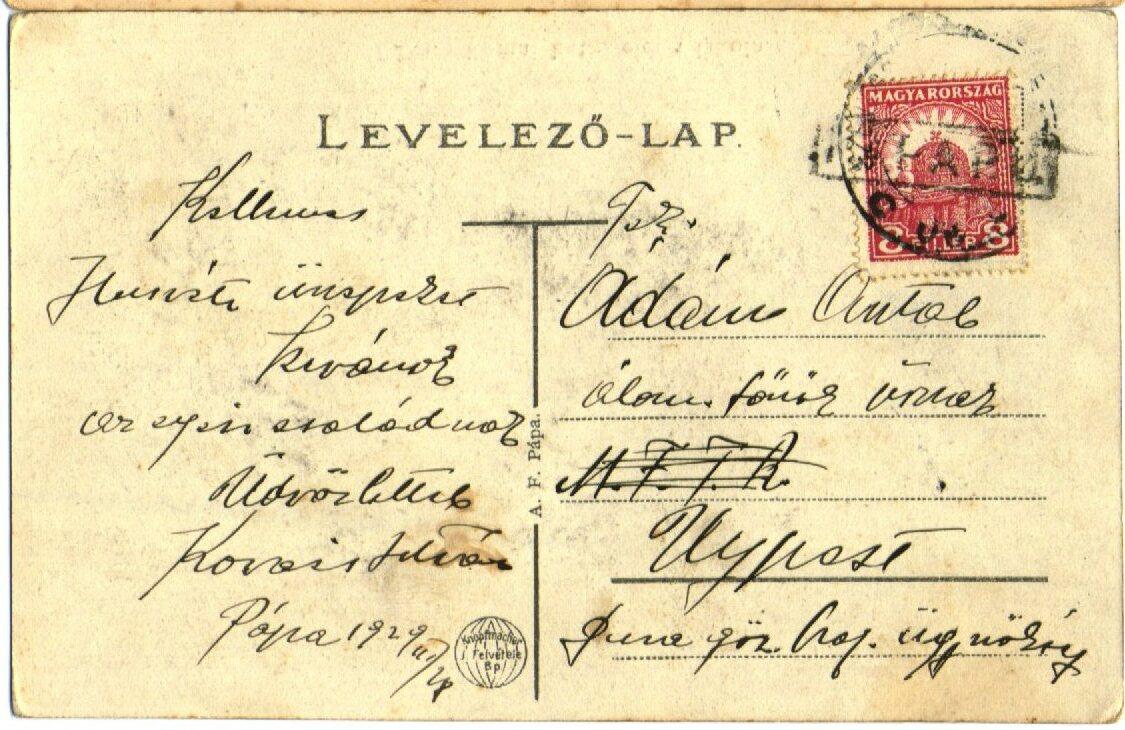 LEVELEZŐ-LAP.
MAGYARORSZÁG
8 FILLÉR 8
PÁPA
Kellemes
Husvéti ünnepeket
kivánok
az egész családnak
Üdvözlettel
Kovács István
Pápa 1929 III/28
A. F. Pápa.
Knopfmacher
Felvétele
Bp
Ádám Antal
álom. főnök úrnak
M. F. T. R.
Ujpest
Duna göz. haj. ügynökség